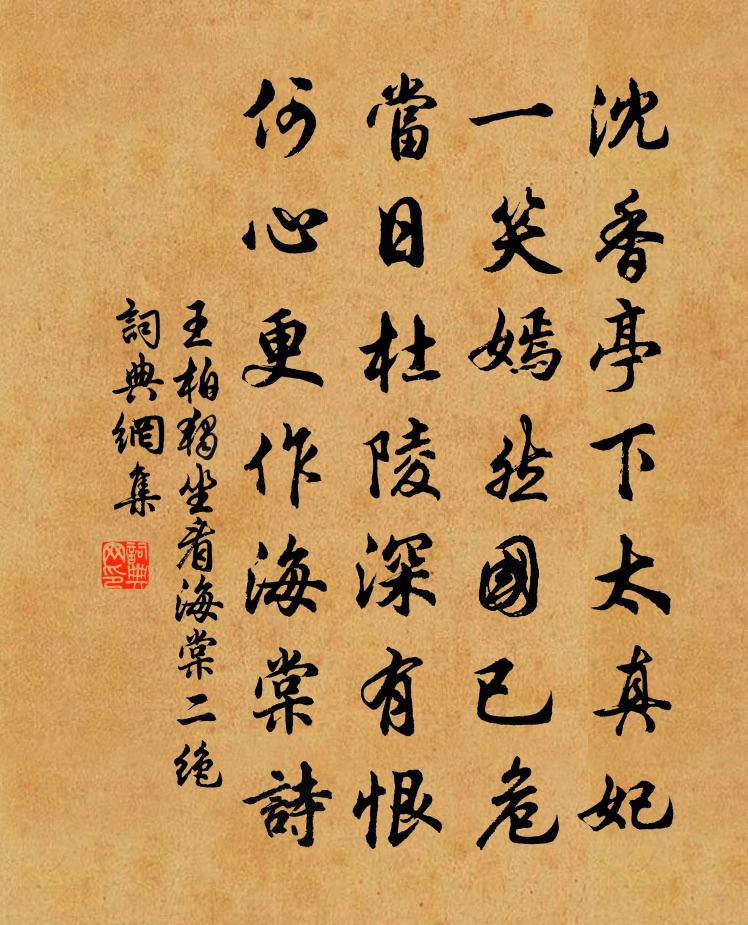 沈香亭下太真妃
一笑嫣然國已危
當日杜陵深有恨
何心更作海棠詩
王柏獨坐看海棠二絶
詞典網集
詞典
网印